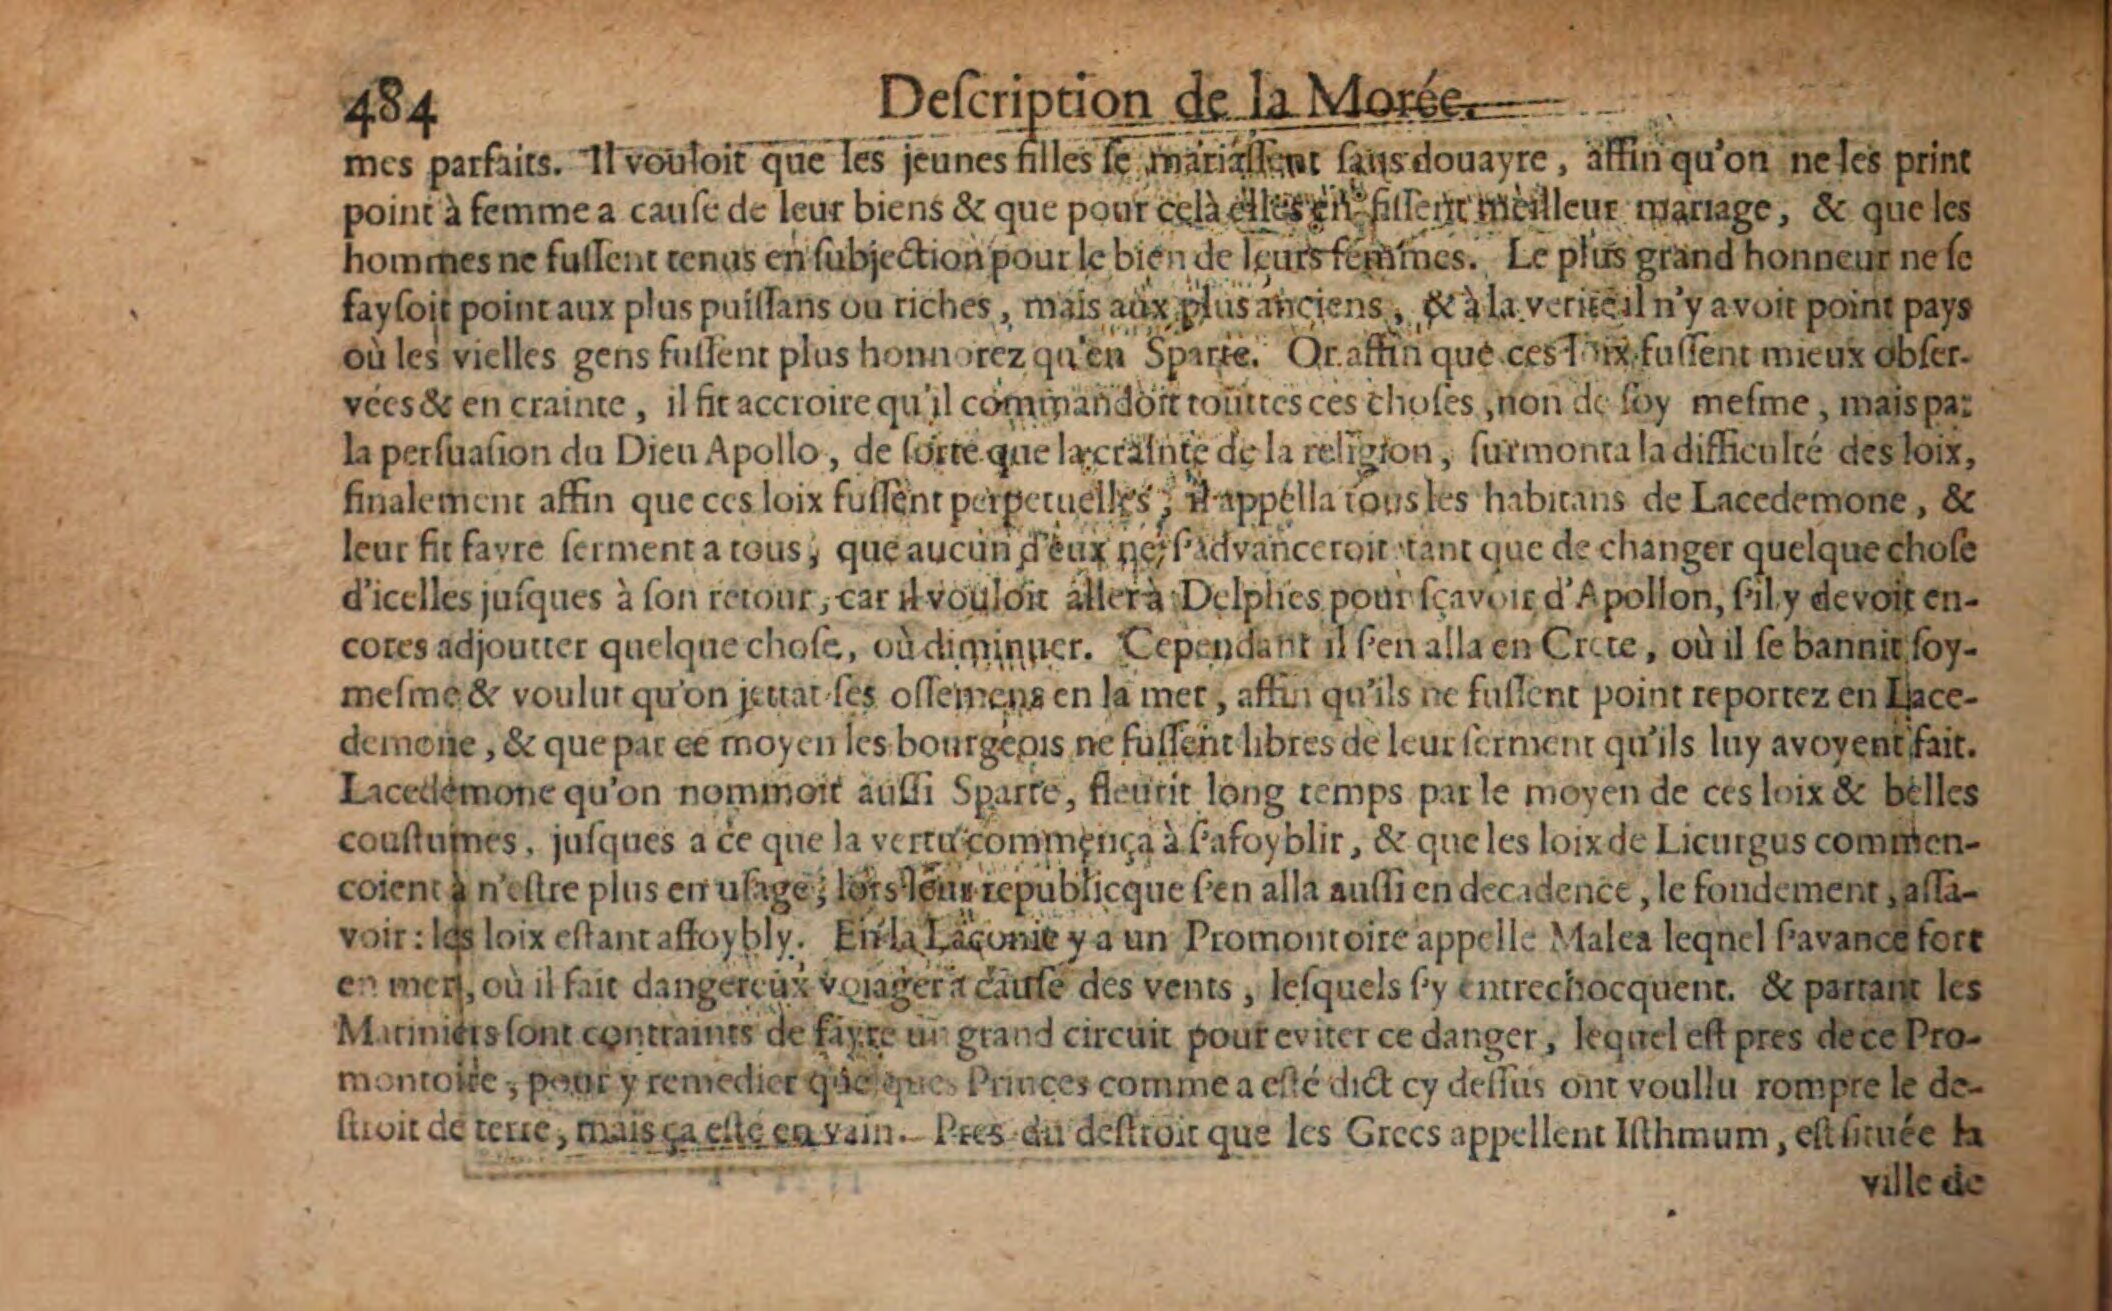 484 Deſcription de la Morée.
mes parfaits. Il vouloit que les jeunes filles ſe mariaſſent ſans douayre, affin qu'on ne les print
point à femme a cauſe de leur biens & que pour celà elles en fiſſent meilleur mariage, & que les
hommes ne fuſſent tenus en ſubjection pour le bien de leurs femmes. Le plus grand honneur ne ſe
fayſoit point aux plus puiſſans ou riches, mais aux plus anciens, & à la verité il n'y avoit point pays
où les vielles gens fuſſent plus honnorez qu'en Sparte. Or affin que ces loix fuſſent mieux obſer-
vées & en crainte, il fit accroire qu'il commandoit touttes ces choſes, non de ſoy meſme, mais par
la perſuaſion du Dieu Apollo, de ſorte que la crainte de la religion, ſurmonta la difficulté des loix,
finalement affin que ces loix fuſſent perpetuelles, il appella tous les habitans de Lacedemone, &
leur fit fayre ſerment a tous, que aucun d'eux ne ſ'advanceroit tant que de changer quelque choſe
d'icelles juſques à ſon retour, car il vouloit aller à Delphes pour ſçavoir d'Apollon, ſ'il y devoit en-
cores adjoutter quelque choſe, où diminuer. Cependant il ſ'en alla en Crete, où il ſe bannit ſoy-
meſme & voulut qu'on jettat ſes oſſemens en la mer, affin qu'ils ne fuſſent point reportez en Lace-
demone, & que par ce moyen les bourgeois ne fuſſent libres de leur ſerment qu'ils luy avoyent fait.
Lacedemone qu'on nommoit auſſi Sparte, fleurit long temps par le moyen de ces loix & belles
couſtumes, juſques a ce que la vertu commença à ſ'afoyblir, & que les loix de Licurgus commen-
coient à n'eſtre plus en uſage; lors leur republicque ſ'en alla auſſi en decadence, le fondement, aſſa-
voir: les loix eſtant affoybly. En la Laconie y a un Promontoire appelle Malea leqnel ſ'avance fort
en mer, où il fait dangereux voiager a cauſe des vents, leſquels ſ'y entrechocquent. & partant les
Mariniers ſont contraints de fayre un grand circuit pour eviter ce danger, lequel eſt pres de ce Pro-
montoire, pour y remedier quelques Princes comme a eſté dict cy deſſus ont voullu rompre le de-
ſtroit de terre, mais ça eſté en vain. Pres du deſtroit que les Grecs appellent Iſthmum, eſt ſituée la
ville de